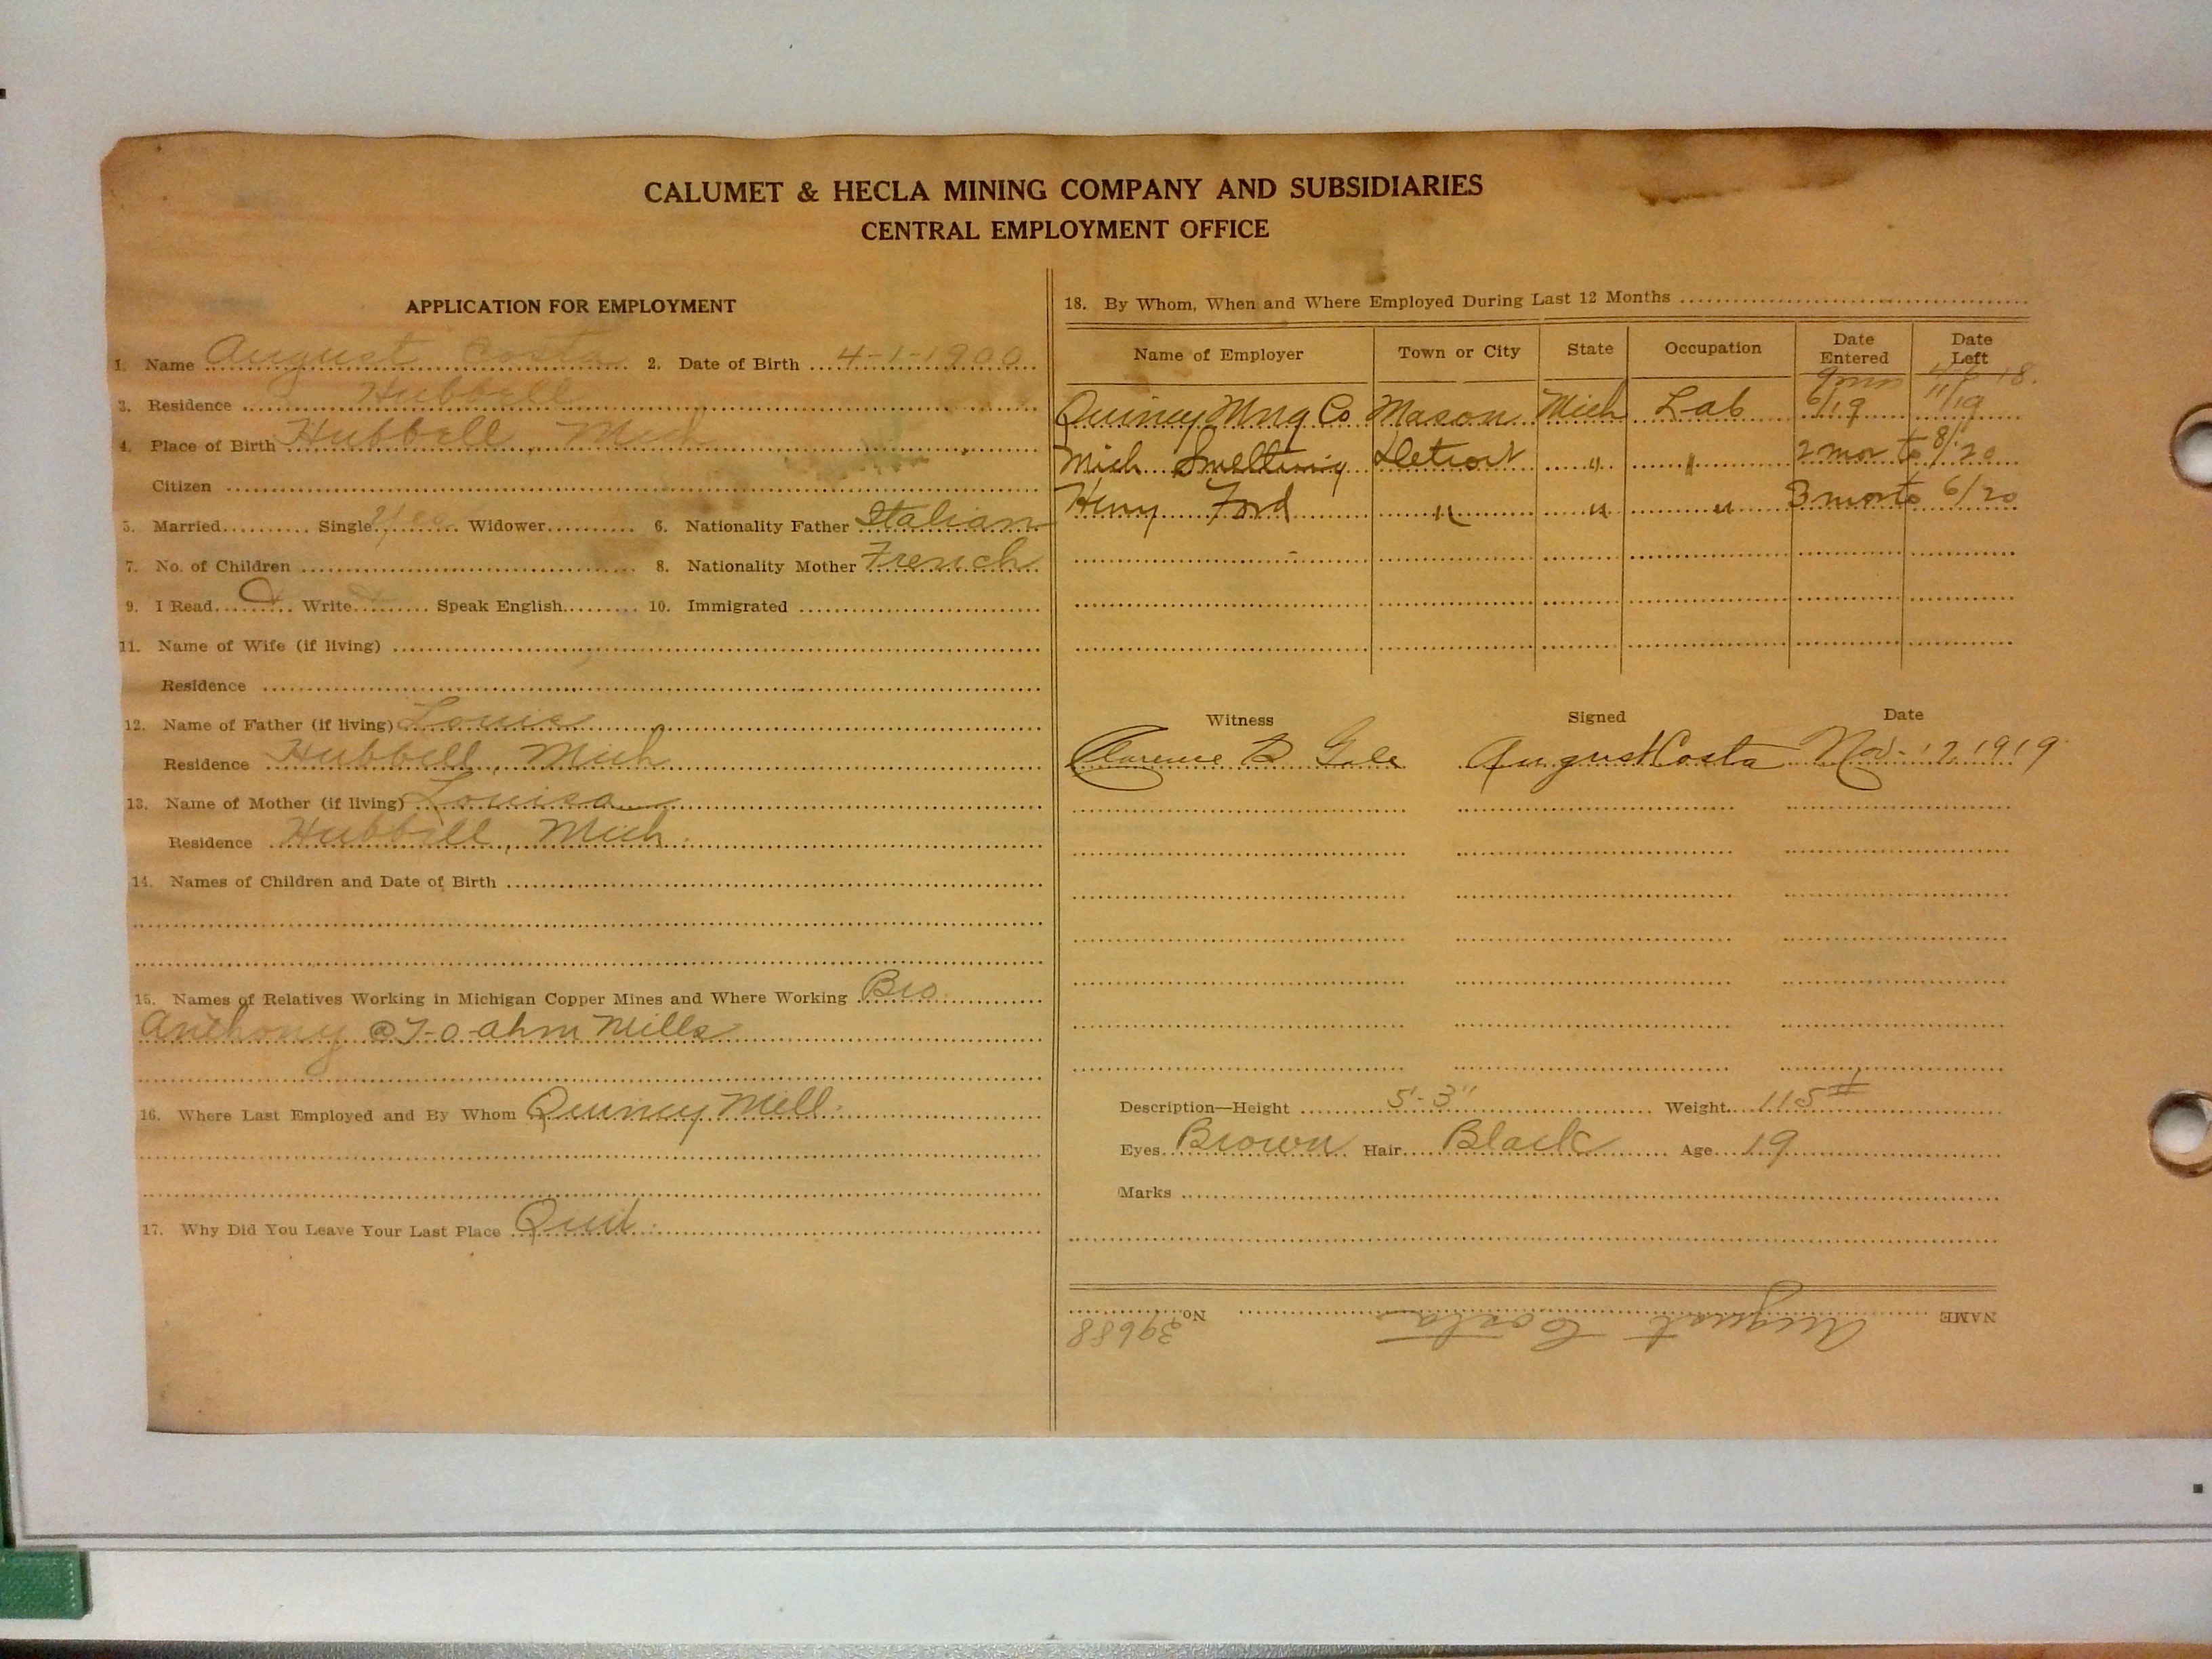 CALUMET & HECLA MINING COMPANY AND SUBSIDIARIES
CENTRAL EMPLOYMENT OFFICE
APPLICATION FOR EMPLOYMENT
1. Name August Costa 2. Date of Birth 4-1-1900
3. Residence Hubbell
4. Place of Birth Hubbell, Mich
Citizen
5. Married Single Yes Widower 6. Nationality Father Italian
7. No. of Children 8. Nationality Mother French
9. I Read Write Speak English 10. Immigrated
11. Name of Wife (if living)
Residence
12. Name of Father (if living) Louis
Residence Hubbell, Mich
13. Name of Mother (if living) Louisa
Residence Hubbell, Mich.
14. Names of Children and Date of Birth
15. Names of Relatives Working in Michigan Copper Mines and Where Working Bro.
Anthony @ Mills
16. Where Last Employed and By Whom Quincy Mill.
17. Why Did You Leave Your Last Place Quit.
18. By Whom, When and Where Employed During Last 12 Months
Name of Employer Town or City State Occupation Date Entered Date Left
Quincy Mng Co Mason Mich Lab 6/19 11/19
Mich Smelting Detroit " " 2 mos to 8/20
Henry Ford " " " 3 mos to 6/20
Witness Signed Date
Clarence August Costa Nov. 12 1919
Description—Height 5'-3" Weight 115#
Eyes Brown Hair Black Age 19
Marks
NAME August Costa No. 39688